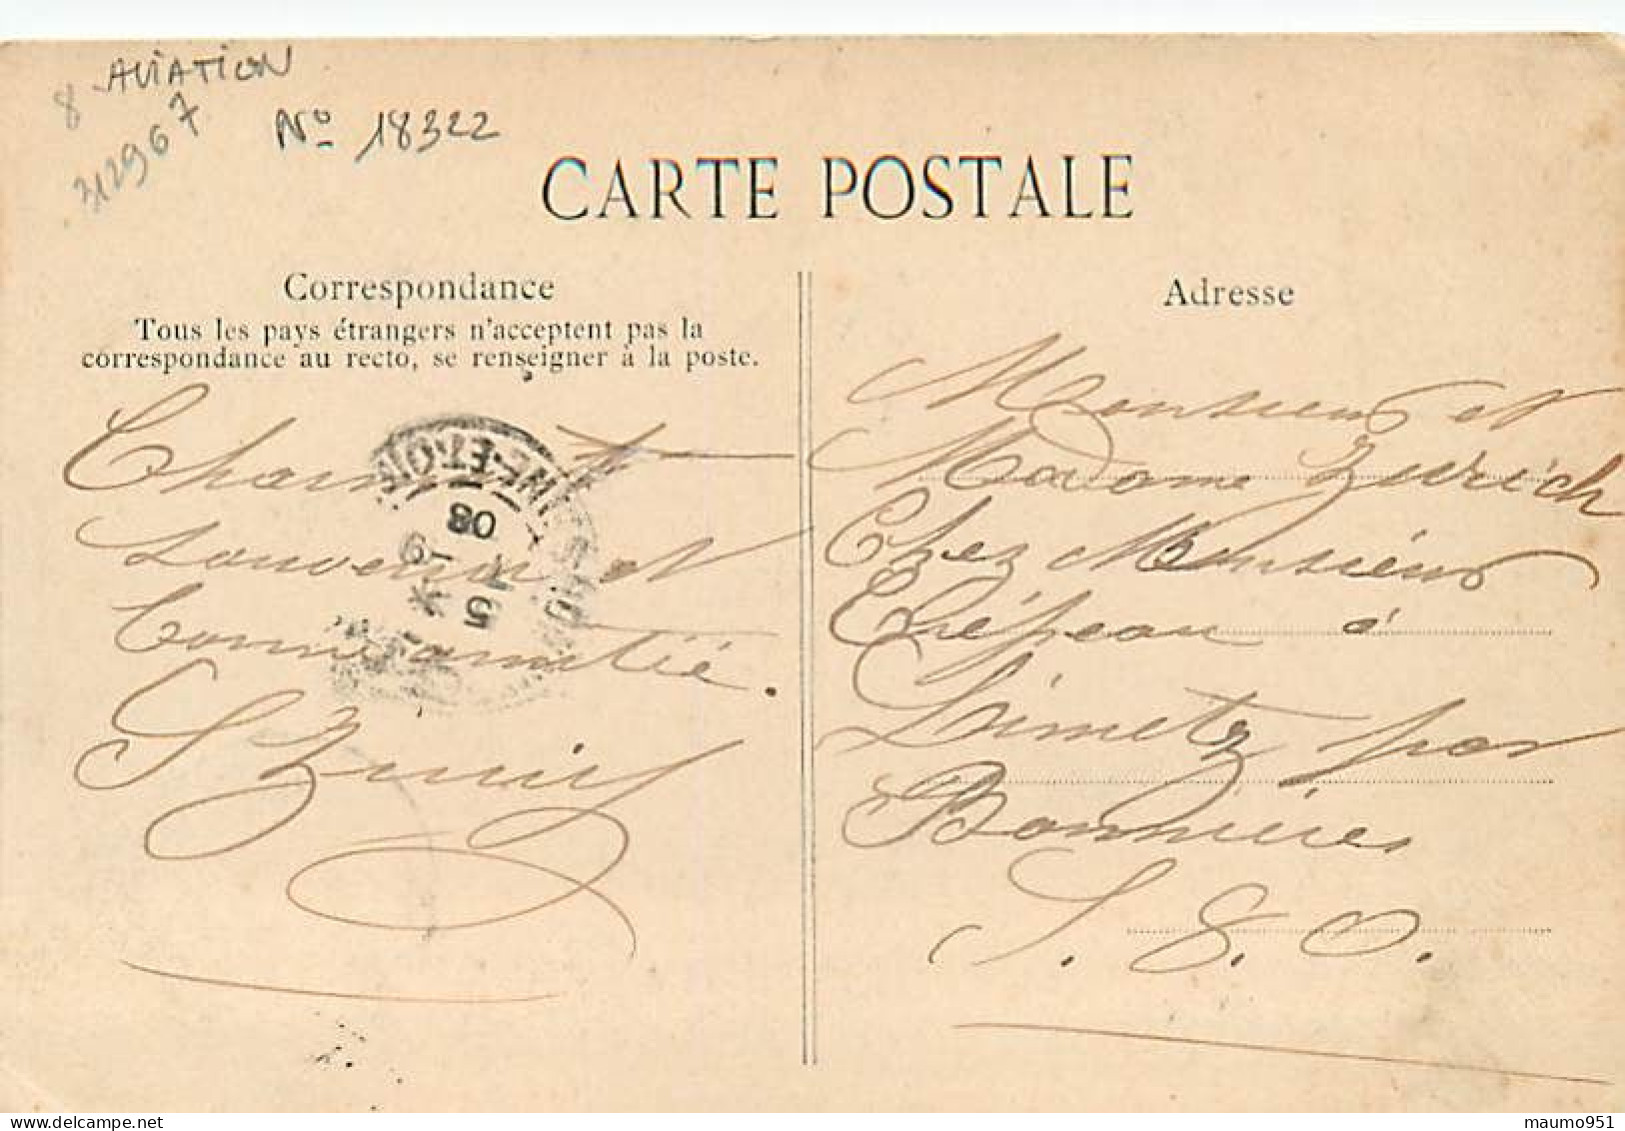 8 AVIATION
312967
No 18322
CARTE POSTALE
Correspondance
Tous les pays étrangers n'acceptent pas la
correspondance au recto, se renseigner à la poste.
Charmant
souvenir et
bonne amitié.
Adresse
Monsieur et
Madame Zurich
Chez Monsieur
Crépeau à
Limetz par
Bonnières
S. & O.
NE-ET-OI
08
15
maumo951